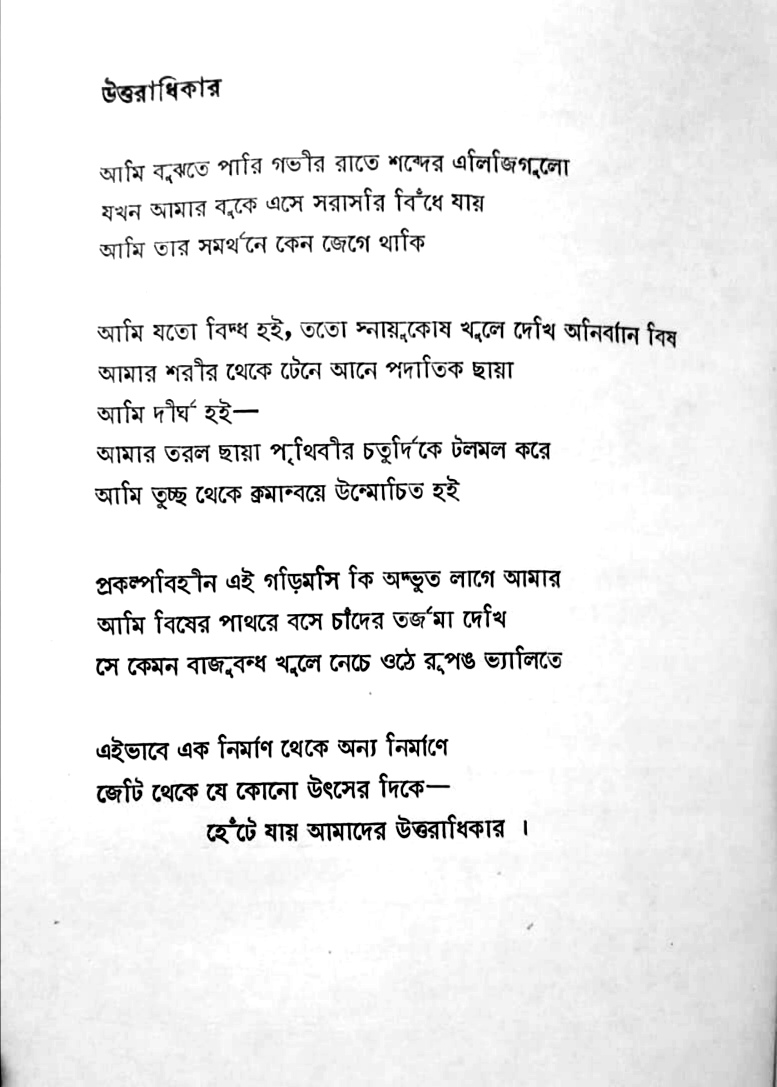 উত্তরাধিকার
আমি বুঝতে পারি গভীর রাতে শব্দের এলিজিগুলো
যখন আমার বুকে এসে সরাসরি বিঁধে যায়
আমি তার সমর্থনে কেন জেগে থাকি
আমি যতো বিদ্ধ হই, ততো স্নায়ুকোষ খুলে দেখি অনির্বান বিষ
আমার শরীর থেকে টেনে আনে পদাতিক ছায়া
আমি দীর্ঘ হই—
আমার তরল ছায়া পৃথিবীর চতুর্দিকে টলমল করে
আমি তুচ্ছ থেকে ক্রমান্বয়ে উন্মোচিত হই
প্রকল্পবিহীন এই গড়িমসি কি অদ্ভুত লাগে আমার
আমি বিষের পাথরে বসে চাঁদের তর্জমা দেখি
সে কেমন বাজুবন্ধ খুলে নেচে ওঠে রূপঙ ভ্যালিতে
এইভাবে এক নির্মাণ থেকে অন্য নির্মাণে
জেটি থেকে যে কোনো উৎসের দিকে—
হেঁটে যায় আমাদের উত্তরাধিকার ।